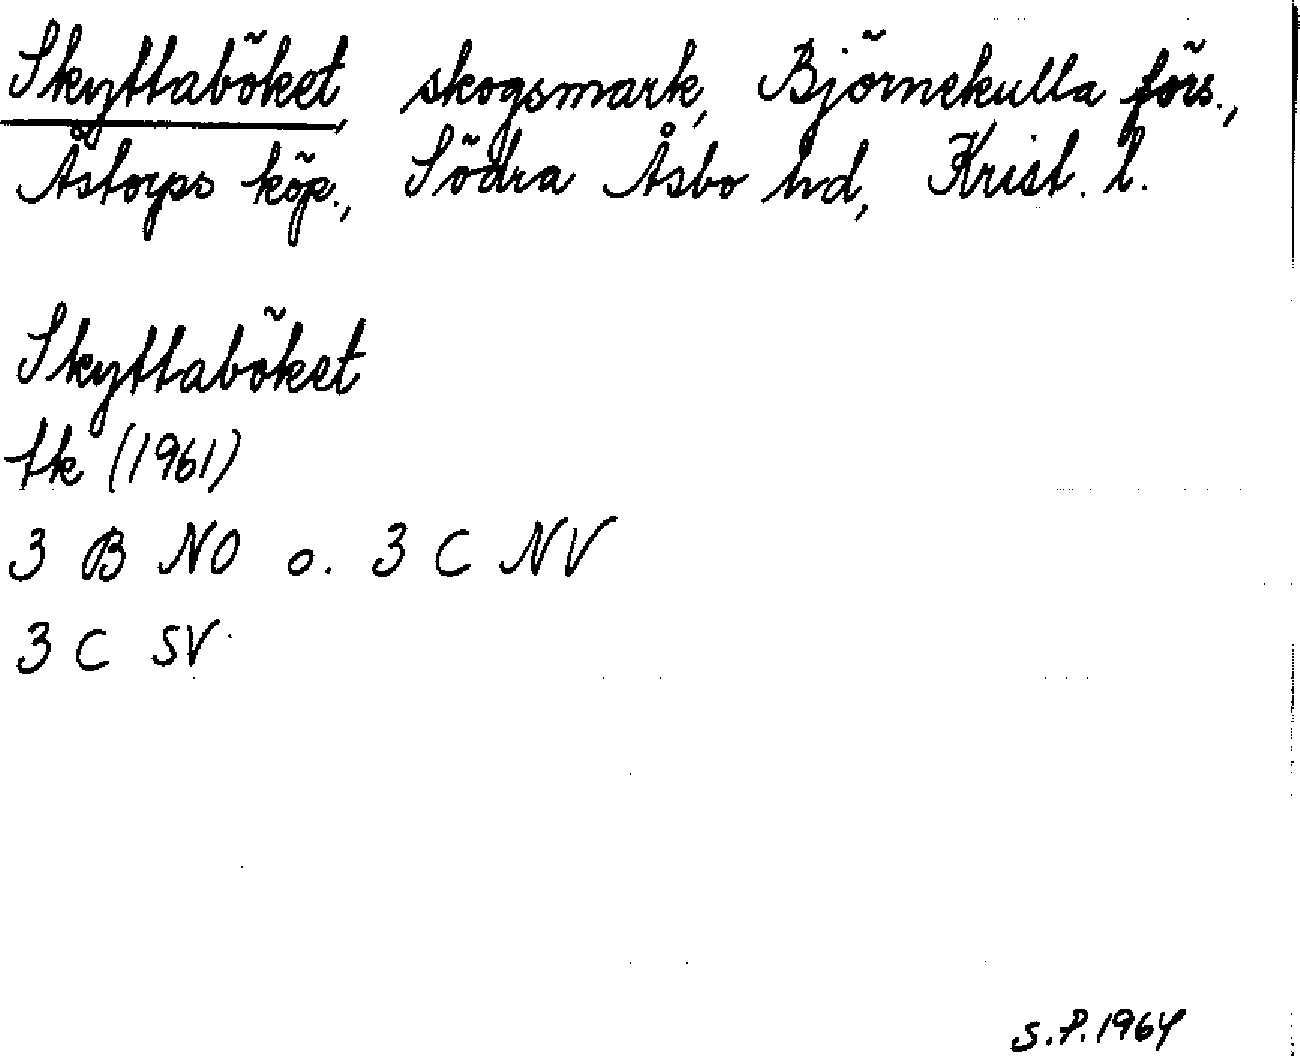 Skyttaböket, skogsmark, Björnekulla förs.,
Åstorps köp., Södra Åsbo hd, Krist. l.
Skyttaböket
tk (1961)
3 B NO o. 3 C NV
3 C SV
S.P. 1964